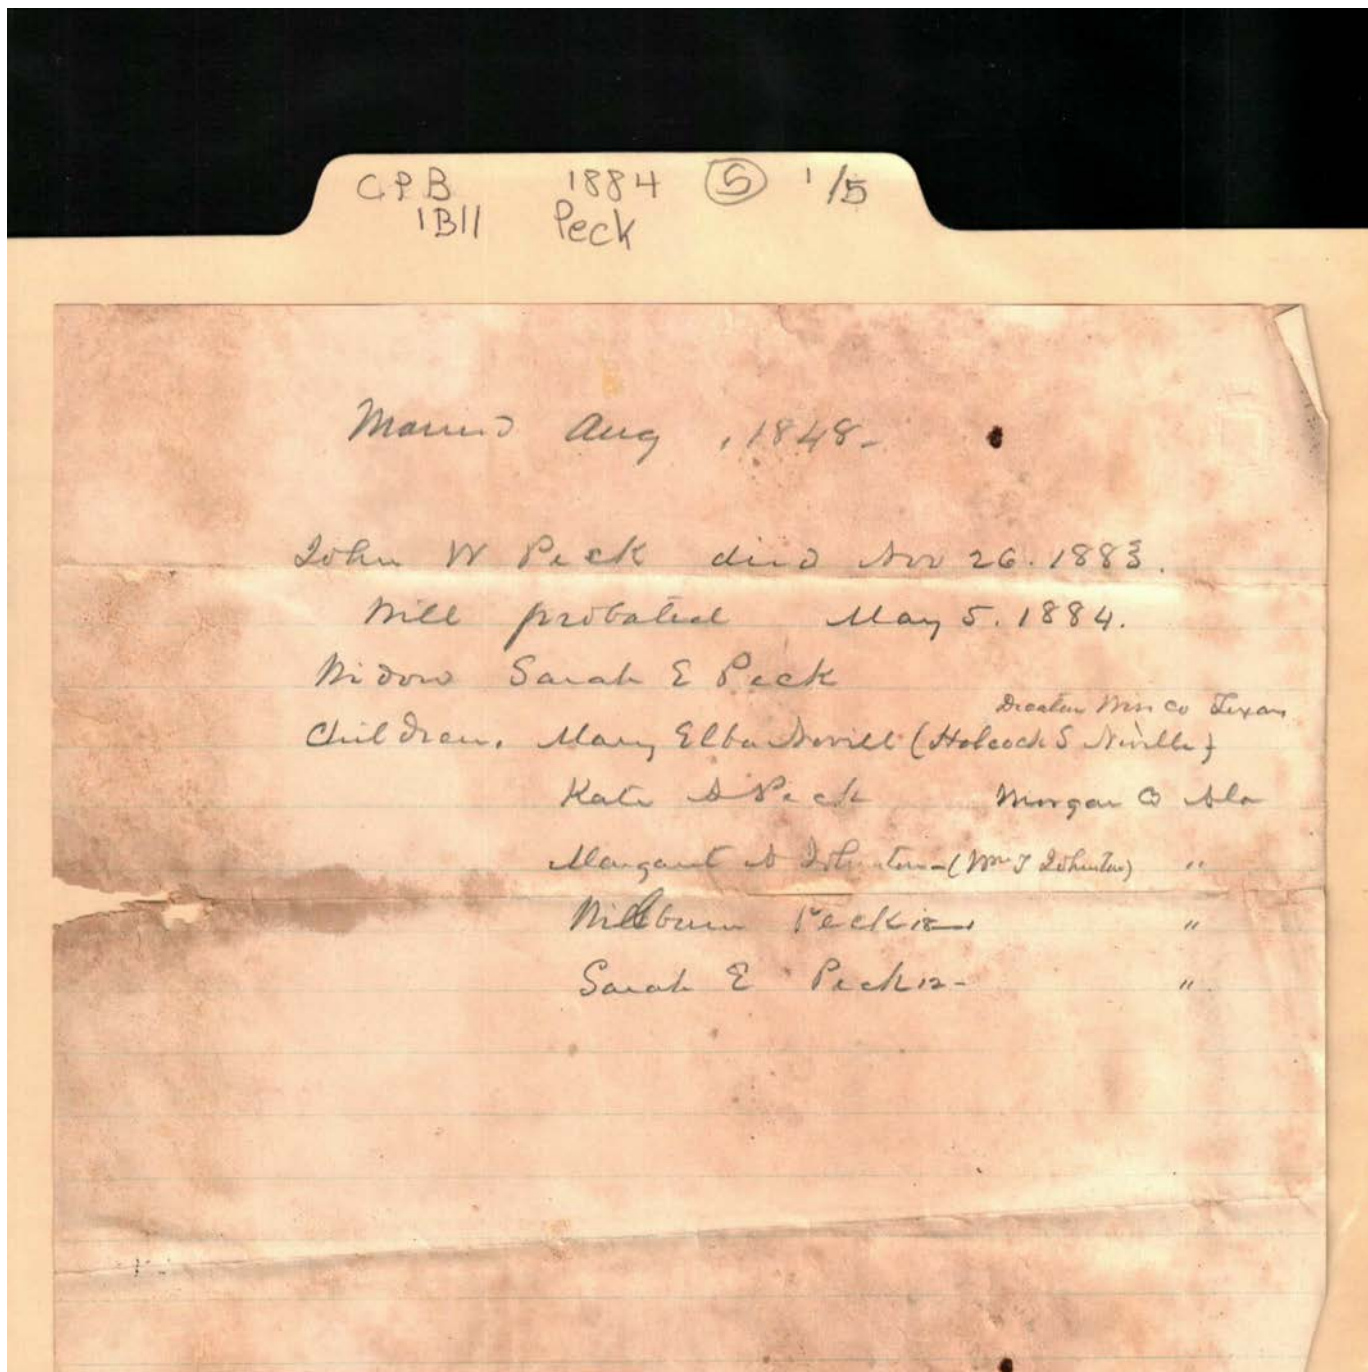 CPB 1884 (5) 1/5
1B11 Peck
Married Aug , 1848-
John W Peck died Nov 26. 1883.
Will probated May 5. 1884.
Widow Sarah E Peck
Wise Co Texas
Children. Mary Elba Nevill ( S Neville)
Kate Peck Morgan Co Ala
Margaret Johnston-(Wm T Johnston) "
Willburn Peck 18- "
Sarah E Peck 12- "